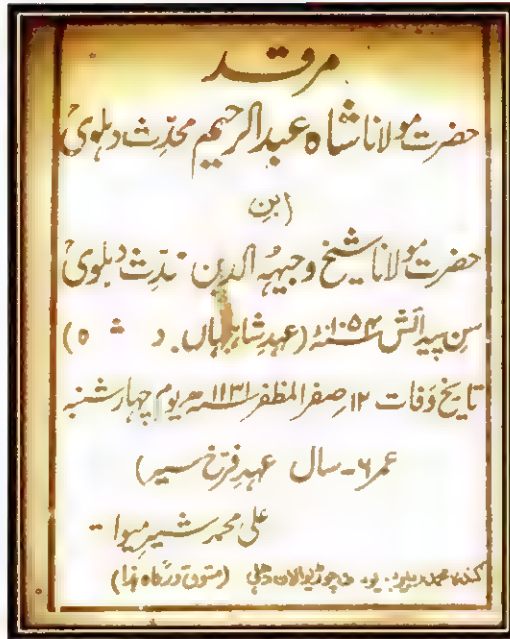 مرقد
حضرت مولانا شاہ عبدالرحیم محدّث دہلویؒ
(بن
حضرت مولانا شیخ وجیہہ الدین دہلویؒ
سن پیدائش ۱۰۵۴ھ (عہد شاہجہاں
تاریخ وفات ۱۲ صفر المظفر ۱۱۳۱ھ یوم چہار شنبہ
عمر سال عہد فرخ سیر)
علی محمد شیر میوات
دہلی (متولی درگاہ ہذا)